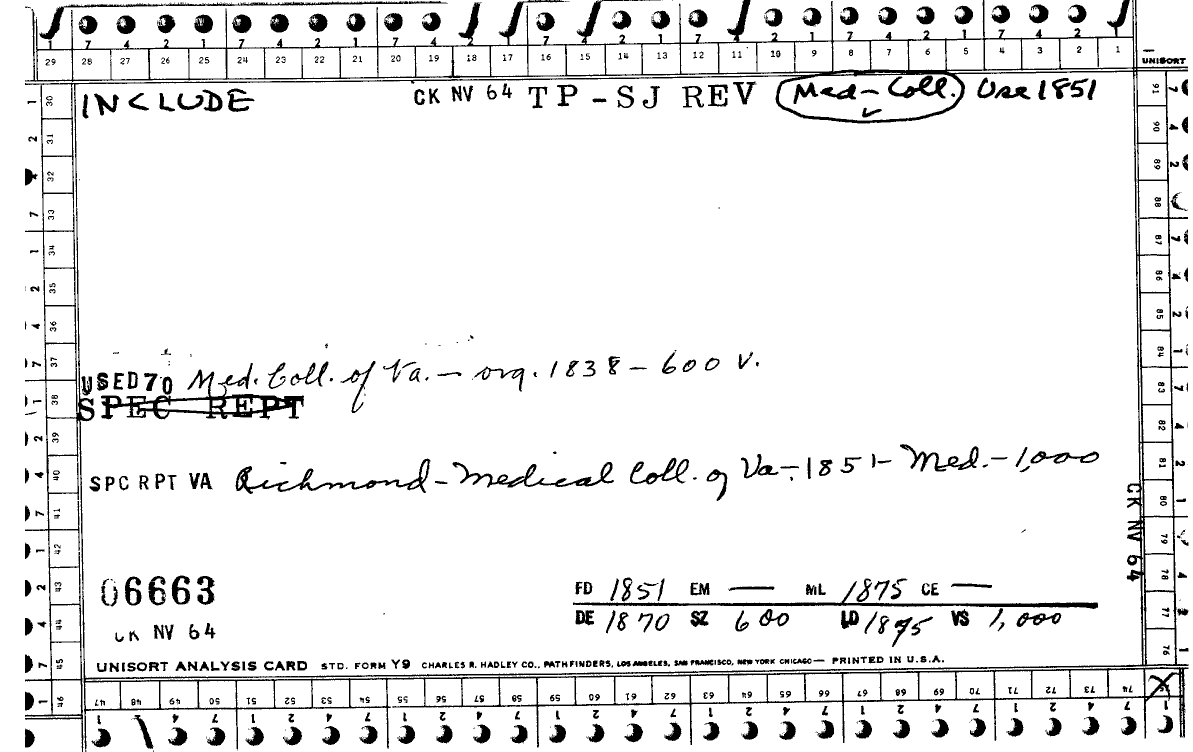 7 4 2 1 7 4 2 1 7 4 2 1 7 4 2 1 7 4 2 1 7 4 2 1
29 28 27 26 25 24 23 22 21 20 19 18 17 16 15 14 13 12 11 10 9 8 7 6 5 4 3 2 1
UNISORT
INCLUDE CK NV 64 TP-SJ REV Med-Coll. Use 1851
USED70 Med. Coll. of Va. — org. 1838 – 600 V.
SPEC REPT
SPC RPT VA Richmond – Medical Coll. of Va – 1851 – Med. – 1,000
CK NV 64
06663
CK NV 64
FD 1851 EM — ML 1875 CE —
DE 1870 SZ 600 LD 1875 VS 1,000
UNISORT ANALYSIS CARD STD. FORM Y9 CHARLES R. HADLEY CO., PATHFINDERS, LOS ANGELES, SAN FRANCISCO, NEW YORK CHICAGO — PRINTED IN U.S.A.
30 31 32 33 34 35 36 37 38 39 40 41 42 43 44 45 46
91 90 89 88 87 86 85 84 83 82 81 80 79 78 77 76
47 48 49 50 51 52 53 54 55 56 57 58 59 60 61 62 63 64 65 66 67 68 69 70 71 72 73 74